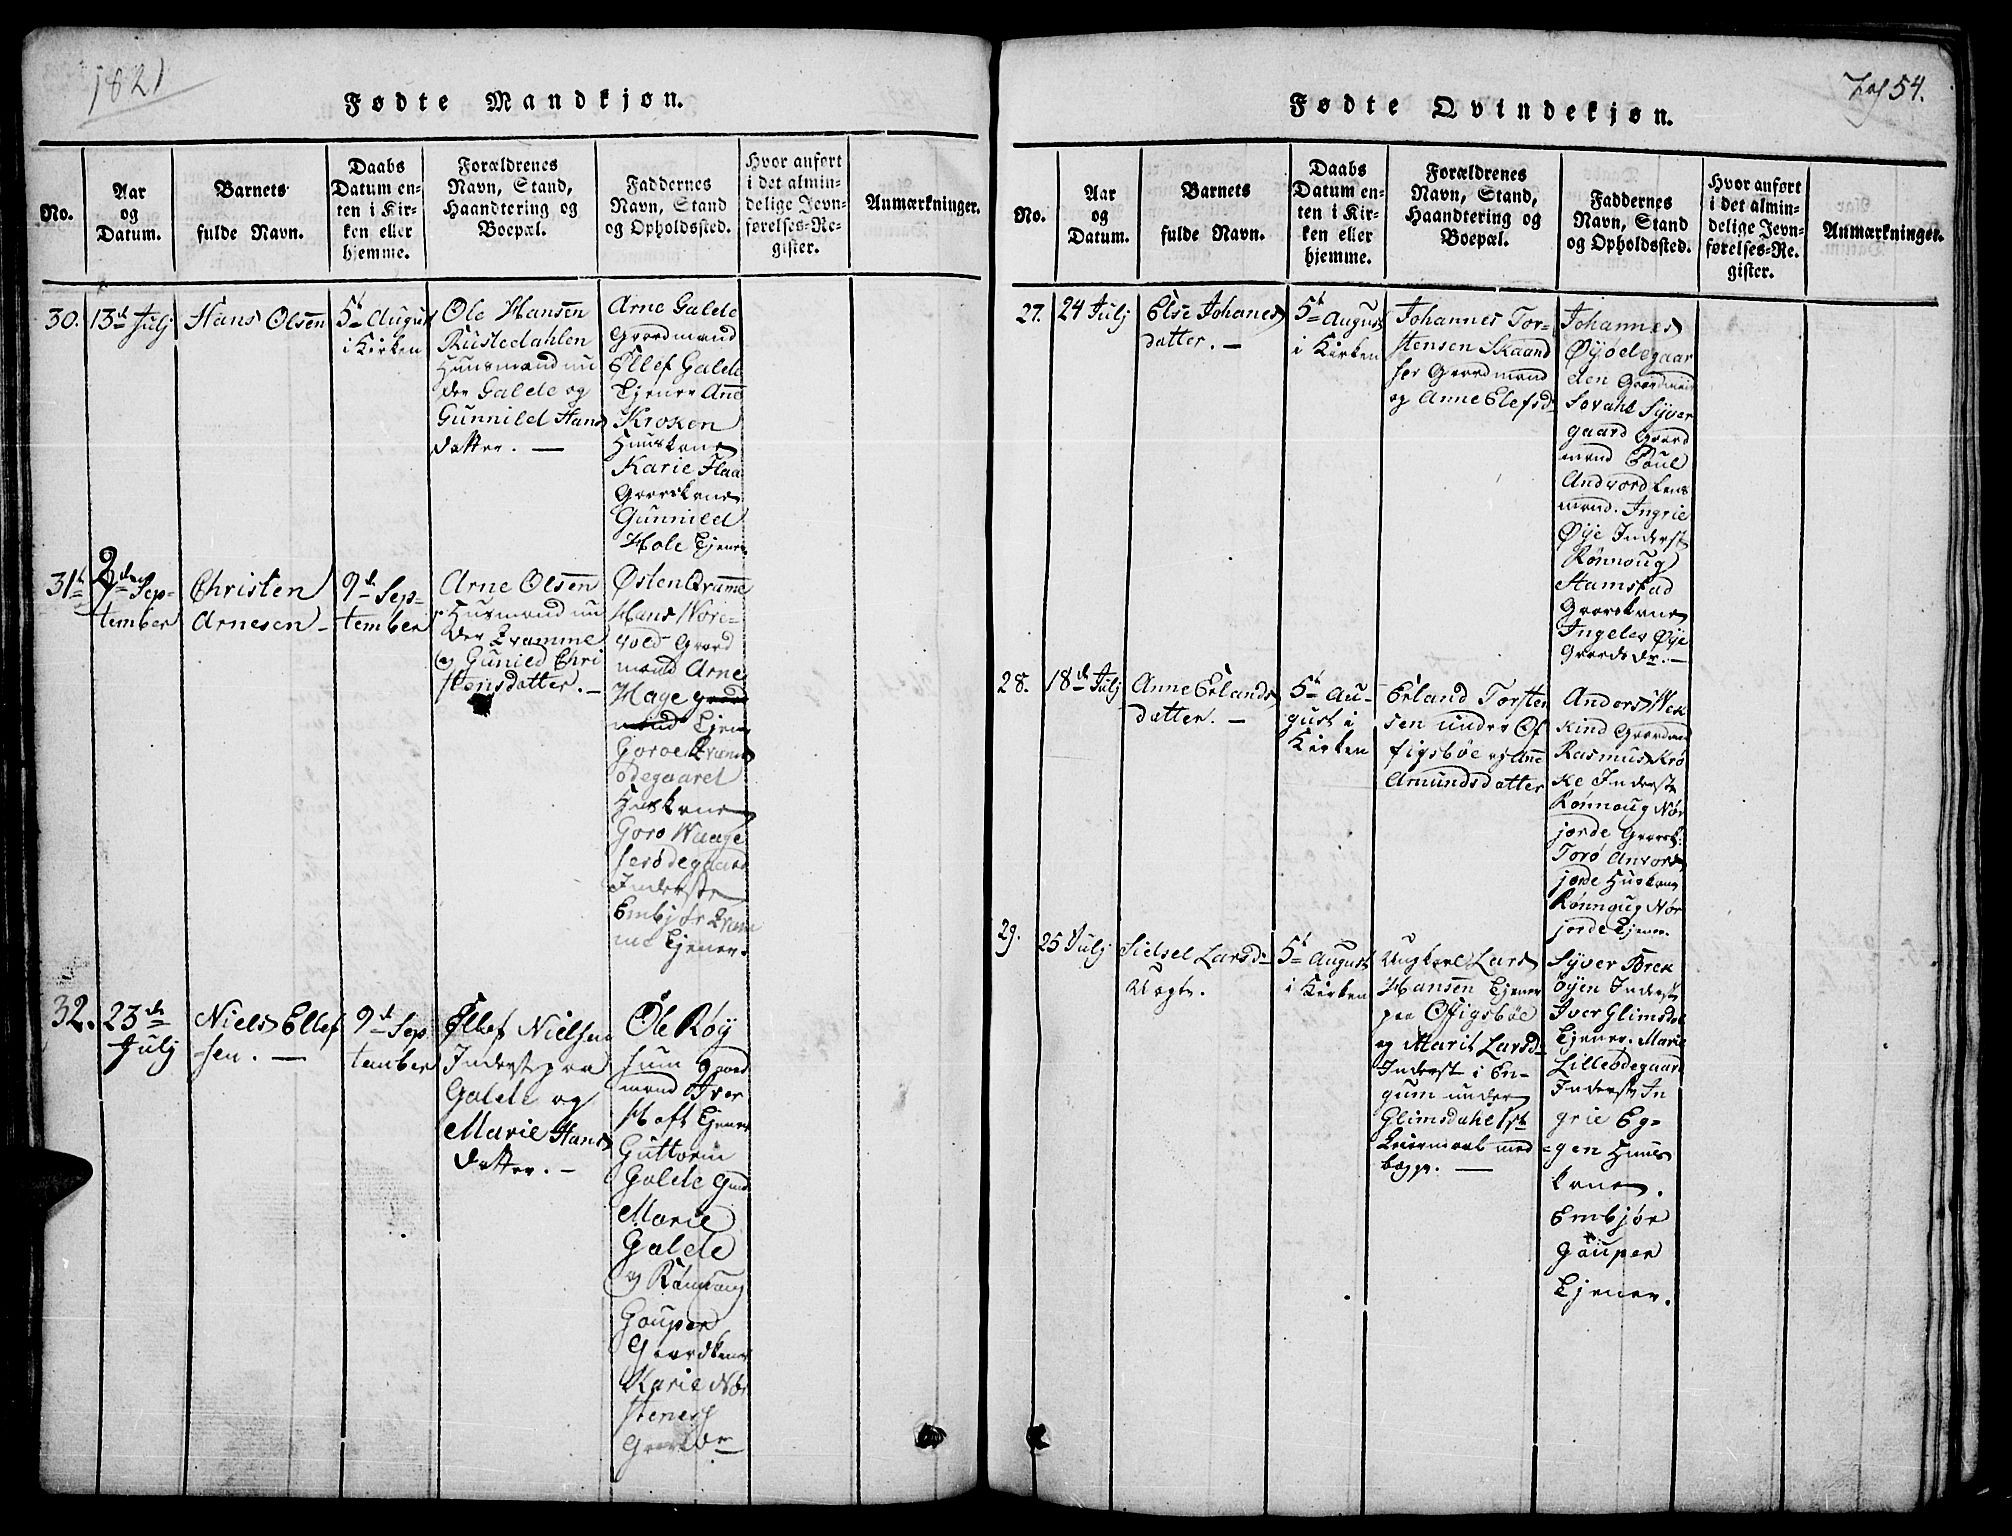 1821
Fødte Mandkjøn.
No.
Aar
og
Datum.
Barnets
fulde Navn.
Daabs
Datum en-
ten i Kir-
ken eller
hjemme.
Forældrenes
Navn, Stand,
Haandtering og
Boepæl.
Faddernes
Navn, Stand
og Opholdssted.
Hvor anført
i det almin-
delige Jevn-
førelses-Re-
gister.
Anmærkninger.
30.
13de Julj
Hans Olsen
5te August
i Kirken
Ole Hansen
Rustedahlen
Huusmand un
der Galde og
Gunnild Hans
datter. —
Arne Galde
Gaardmand
Ellef Galde
Tjener Anne
Kroken
Huuskone
Karie Flaa
Gaardkone
Gunnild
Hole Tjener.
31te
2den Sep-
tember
Christen
Arnesen -
9de Sep-
tember
Arne Olsen
Husmand un
der Qvamme
og Gunild Chri
stensdatter. -
Østen Qvamme
Hans Nore-
vold Gaard
mand Arne
Hage gaard
mand Tjener
Goroe Qvam
ødegaard
Huskone
Goro Waage
Inderste
Embjør Qvam
me Tjener.
32.
23de
Julj
Niels Ellef
sen. —
9de Sep
tember
Ellef Nielsen
Inderst paa
Galde og
Marie Hans
datter. -
Ole Røy
sum gaard
mand Iver
Hoft Tjener
Guttorm
Galde Gmd
Marie
Galde
og Rønnoug
Gouper
Gaardkoner
Karie Nør
stenes
Fødte Qvindekjøn.
54.
No.
Aar
og
Datum.
Barnets
fulde Navn.
Daabs
Datum en-
ten i Kir-
ken eller
hjemme.
Forældrenes
Navn, Stand,
Haandtering og
Boepæl.
Faddernes
Navn, Stand
og Opholdssted.
Hvor anført
i det almin-
delige Jevn-
førelses-Re-
gister.
Anmærkninger.
27.
24 Julj
Else Johanes
datter. —
5te August
i Kirken
Johannes Tor-
stensen Skaand
ser Gaardmand
og Anne Elefsd.
Johannes
Øyødegaar
den Gaardmand
Sovahl Syver
gaard Gaard
mand Poul
Andvord
mand. Ingrie
Øye Inderst
Rønnoug
Stamstad
Gaardkone
Ingeler Øye
Gaards dr. —
28.
18de Julj
Anne Erlands
datter. —
5te Au-
gust i
Kirken
Erland Torsten
sen under Of
figsbøe og Anne
Amundsdatter
Anders Wek
kind Gaardmand
Rasmus Krø
ke Inderste
Rønnoug Nør
jorde Gaardk.
Torø Anvord
jorde Huskone
Rønnoug Nør
jorde Tjener.
29.
25 Julj
Sidsel Larsdr
Uægte.
5te August
i Kirken
Ungkarl Lars
Hansen Tjener
paa Offigsbøe
og Marit Larsdr
Inderst i En-
gum under
Glimsdahl 1ste
Leiermaal med
begge. —
Syver Brek
øyen Inderst
Iver Glimsdal
Tjener. Marie
Lilleødegaard
Inderst In
grie Eg-
gen Huus
kone.
Embjør
Gouper
Tjener.